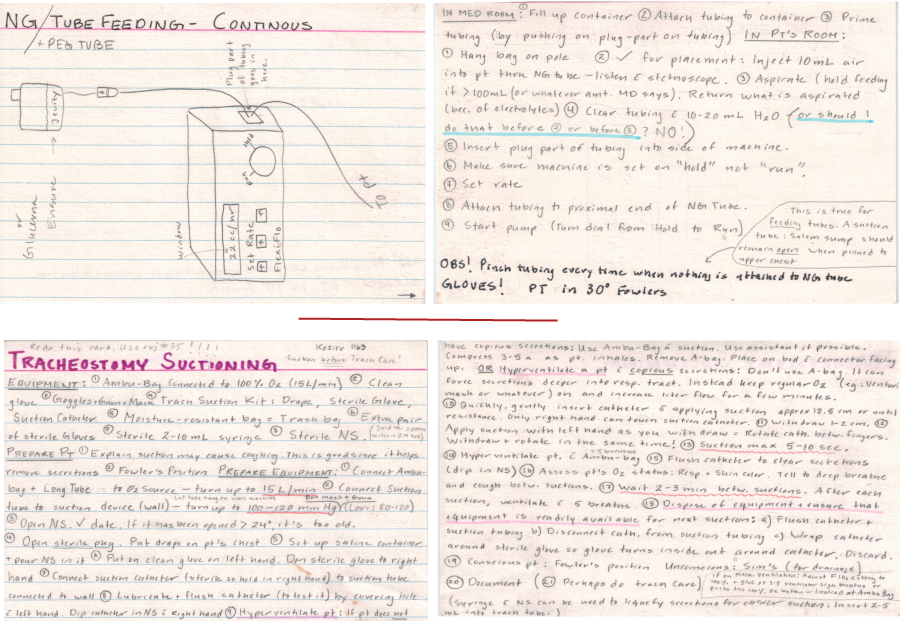 NG/TUBE FEEDING - CONTINOUS
/+ PEG TUBE
Plug part
of tubing
goes in
here.
Jevity
or
Glucerna
Ensure
Hold
Run
To pt
Window
22 cc/hr
Set Rate
Flexiflo
IN MED ROOM: ① Fill up container ② Attach tubing to container ③ Prime
tubing (by pushing on plug-part on tubing) IN PT'S ROOM:
① Hang bag on pole ② ✓ for placement: Inject 10mL air
into pt thru NG tube - listen c̄ stetnoscope. ③ Aspirate (hold feeding
if >100mL (or whatever amt. MD says). Return what is aspirated
(bec. of electrolytes) ④ Clear tubing c̄ 10-20 mL H2O (or should I
do that before ② or before ③? NO!)
⑤ Insert plug part of tubing into side of machine.
⑥ Make sure machine is set on "hold" not "run".
⑦ Set rate
⑧ Attach tubing to proximal end of NG Tube.
⑨ Start pump (Turn dial from Hold to Run)
This is true for
feeding tubes. A suction
tube: Salem sump should
remain open when pinned to
upper chest
OBS! Pinch tubing every time when nothing is attached to NG tube
GLOVES! PT in 30° Fowlers
Redo this card. Use obj #35 !!!!
Kozier 1163
TRACHEOSTOMY SUCTIONING
Suction before Trach Care!
EQUIPMENT: ① Ambu-Bag connected to 100% O2 (15L/min) ② Clean
glove ③ Goggles+Gown+Mask ④ Trach Suction Kit: Drape, Sterile Glove,
Suction Catheter ⑤ Moisture-resistant bag = Trash bag ⑥ Extra pair
of sterile Gloves ⑦ Sterile 2-10 mL syringe ⑧ Sterile NS.
PREPARE PT ① Explain suction may cause coughing. This is good since it helps
remove secretions ② Fowler's Position PREPARE EQUIPMENT: ① Connect Ambu-
bag + Long Tube → to O2 Source - turn up to 15 L/min ② Connect Suction
Let tube hang on wall machine. Don mask + Gown
tube to suction device (wall) - turn up to 100-120 mm Hg (Lori: 80-120)
③ Open NS. ✓ date. If it has been opened > 24°, it's too old.
④ Open sterile pkg. Put drape on pt's chest ⑤ Set up saline container
+ pour NS in it ⑥ Put on clean glove on left hand. Don sterile glove to right
hand ⑦ Connect suction catheter (sterile so hold in right hand) to suction tube
connected to wall ⑧ Lubricate + flush catheter (to test it) by covering hole
c̄ left hand. Dip catheter in NS c̄ right hand ⑨ Hyperventilate pt: If pt does not
have copious secretions: Use Ambu-Bag c̄ suction. Use assistant if possible.
Compress 3-5 x as pt. inhales. Remove A-bag. Place on bed c̄ connector facing
up. OR Hyperventilate a pt c̄ copious secretions: Don't use A-bag. It can
force secretions deeper into resp. tract. Instead keep regular O2 (eg: Venturi
mask or whatever) on and increase liter flow for a few minutes.
⑩ Quickly, gently insert catheter s̄ applying suction approx 12.5 cm or until
resistance. Only right hand can touch suction catheter. ⑪ Withdraw 1-2 cm. ⑫
Apply suction with left hand as you with draw = Rotate cath. betw. fingers.
Withdraw + rotate in the same time! ⑬ Suction max 5-10 sec.
⑭ Hyperventilate pt. c̄ Ambu-Bag ⑮ Flush catheter to clear secretions
(dip in NS) ⑯ Assess pt's O2 status: Resp + skin color - Tell to deep breathe
and cough betw. suctions. ⑰ Wait 2-3 min betw. suctions. After each
suction, ventilate c̄ 5 breaths. ⑱ Dispose of equipment + ensure that
equipment is readily available for next suction: a) Flush catheter +
suction tubing b) Disconnect cath. from suction tubing c) Wrap catheter
around sterile glove so glove turns inside out around catheter. Discard.
⑲ Conscious pt: Fowler's position Unconscious: Sim's (for drainage)
⑳ Document ㉑ Perhaps do trach care)
(Syringe c̄ NS can be used to liquefy secretions for easier suction: Insert 2-5
mL into trach tube.)